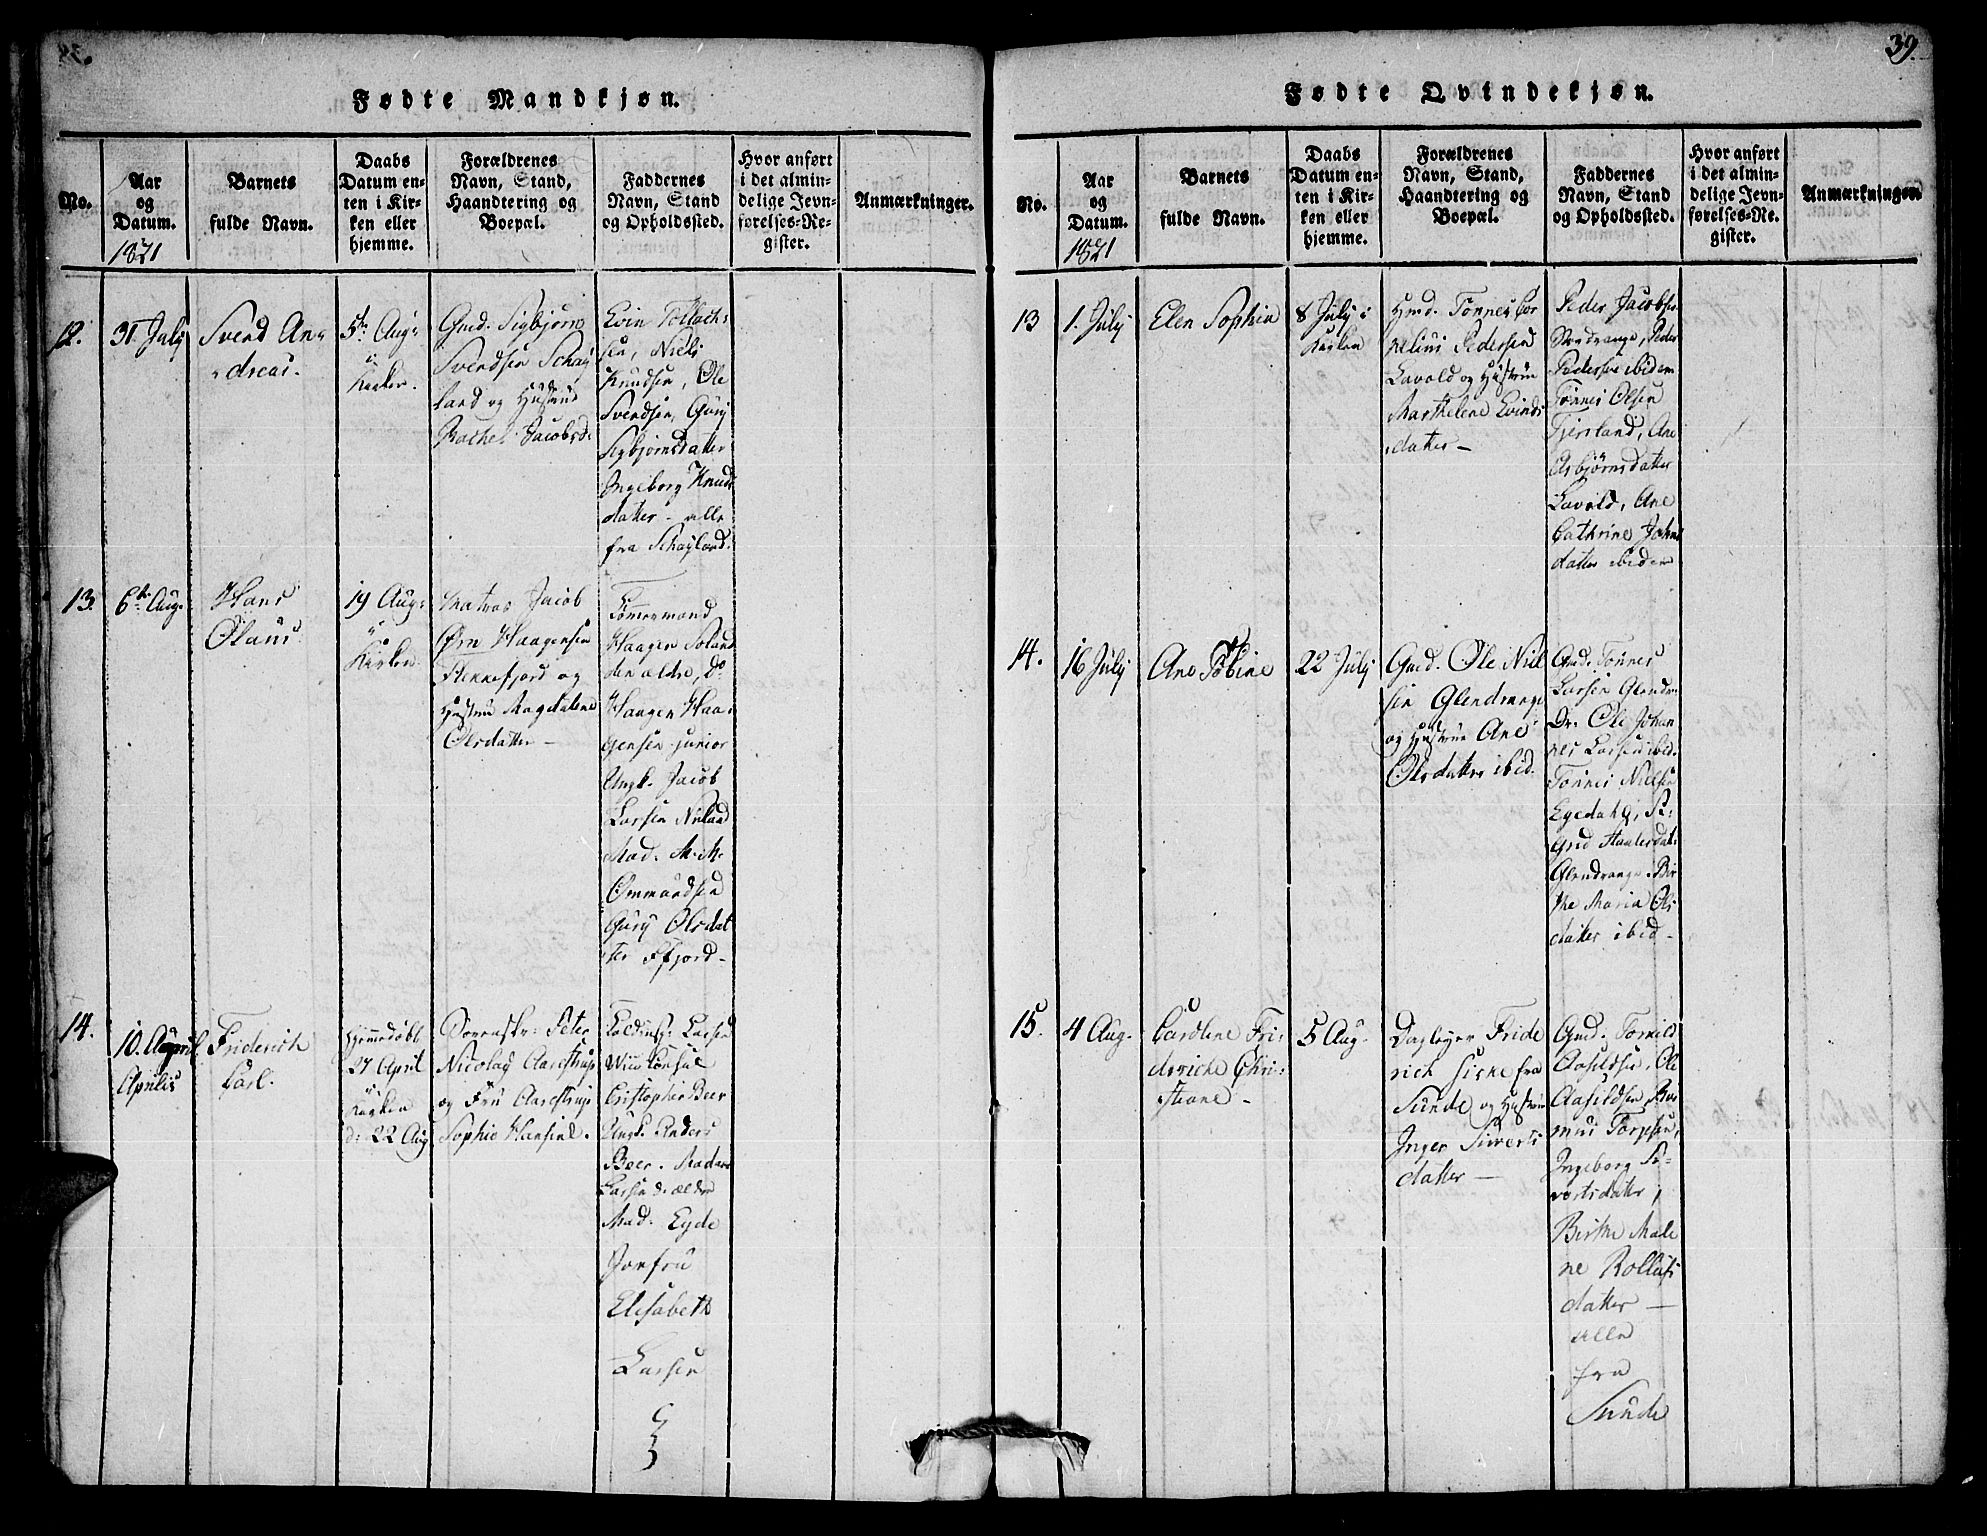 39.
Fødte Mandkjøn.
No.
Aar
og
Datum.
1821
Barnets
fulde Navn.
Daabs
Datum en-
ten i Kir-
ken eller
hjemme.
Forældrenes
Navn, Stand,
Haandtering og
Boepæl.
Faddernes
Navn, Stand
og Opholdssted.
Hvor anført
i det almin-
delige Jevn-
førelses-Re-
gister.
Anmærkninger.
12.
31 July
Svend An-
dreas.
5te Aug:
i
Kirken.
Gmd. Sigbjørn
Svendsen Schaj
land og Hustrue
Rachel Jacobsd:
Evin Tollach-
sen, Niels
Knudsen, Ole
Svendsen, Gurj
Sigbjørnsdatter
Ingeborg Knuds
datter - alle
fra Schajland.
13.
6te Aug.
Hans
Olaus.
19 Aug:
i
Kirken.
Matros Jacob
Ørn Haagensen
Flekkefjord og
Hustrue Magdalene
Olsdatter -
Tømermand
Haagen Noland
den ældre, Do
Haagen Haa-
gensen junior
Ungk. Jacob
Larsen
Mad. M. M.
Ommundsen
Gurj Olsdat
ter Ffjord -
14.
10. April
Aprilis
Friderich
Carl.
Hjemmedøbt
27 April
i Kirken
d: 22 Aug
Sorenskr: Peter
Nicolay Aarestrup
og Fru Aarestrup
Sophie Hansine.
Larsen
Consul
Cristopher Beer
Ungk. Anders
Beer. Madame
Larsen d: ældre
Mad. Eyde
Jomfru
Elisabeth
Larsen
Fødte Qvindekjøn.
No.
Aar
og
Datum.
1821
Barnets
fulde Navn.
Daabs
Datum en-
ten i Kir-
ken eller
hjemme.
Forældrenes
Navn, Stand,
Haandtering og
Boepæl.
Faddernes
Navn, Stand
og Opholdssted.
Hvor anført
i det almin-
delige Jevn-
førelses-Re-
gister.
Anmærkninger
13
1. July
Elen Sophia
8 July i
Kirken
Hmd. Tønnes Cor
nelius Pedersen
Lavold og Hustrue
Marthelene Evinds
datter -
Peder Jacobsen
Peder
Pedersen ibidem
Tønnes Olsen
Tjersland, Ane
Asbjørnsdatter
Lavold, Ane
Cathrine Johns
datter ibidem
14.
16 July
Ane Tobine
22 July
Gmd. Ole Niel
sen Glendrange
og Hustrue Ane
Olsdatter ibid.
Gmd. Tønnes
Larsen Glendr:
Dr. Ole Johan
nes Larsen ibid.
Tønnes Nielsen
Egedahl, Si-
grid
Glendrange, Bir
the Maria Ols
datter ibid -
15.
4 Aug.
Caroline Fri-
deriche Chri-
stiane -
5 Aug.
Dagleyer Fride
rich fra
Sunde og Hustrue
Inger Siverts
datter -
Gmd. Tormild
Aasildsen, Ole
Aasildsen,
Ingeborg Si-
vertsdatter,
Birthe Male
ne
datter -
alle
fra
Sunde